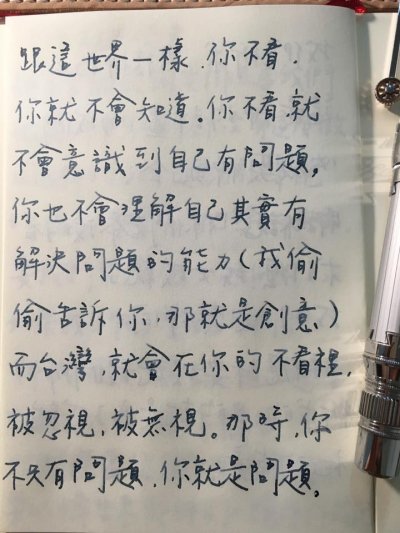 跟這世界一樣,你不看,
你就不會知道。你不看,就
不會意識到自己有問題,
你也不會理解自己其實有
解決問題的能力(我偷
偷告訴你,那就是創意、)
而台灣,就會在你的不看裡,
被忽視,被無視。那時,你
不只有問題,你就是問題。